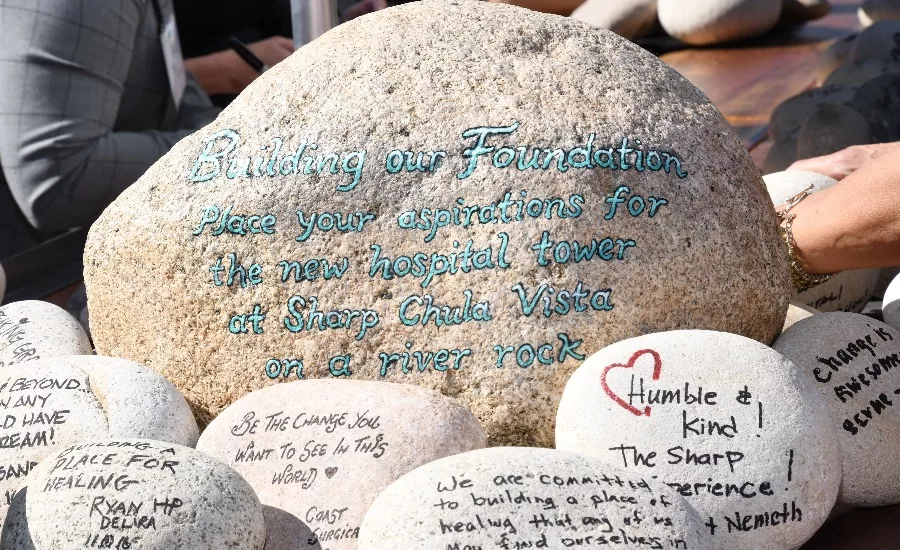 Building our Foundation
Place your aspirations for
the new hospital tower
at Sharp Chula Vista
on a river rock
& BEYOND...
N ANY
LD HAVE
REAM!
BUILDING A
PLACE FOR
HEALING
RYAN HP
BE THE CHANGE YOU
WANT TO SEE IN THIS
WORLD ♥
COAST
SURGICA
We are committed
to building a place of
healing that any of us
may find ourselves in
Humble &
Kind!
The Sharp
perience!
+ Nemeth
Change is
Awesome